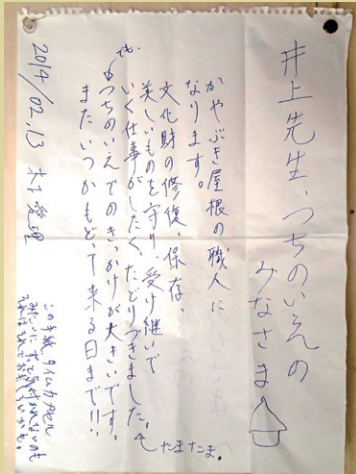 井上先生、つちのいえの
みなさま
かやぶき屋根の職人に
なります。
文化財の修復、保存、
美しいものを守り、受け継いで
いく仕事がしたく、たどりつきました。
たまたま。
も、つちのいえでのきっかけが大きいです。
またいつかもどって来る日まで!!
2014/02.13
この手紙タイムカプセル
みたいにずっと気付かれないのも